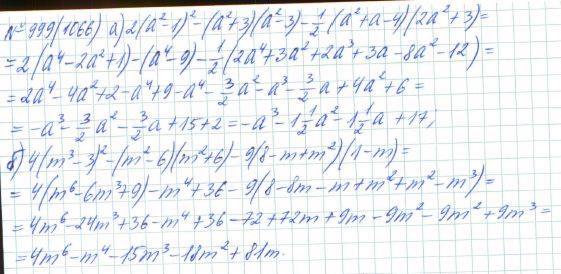 № 999(1066) а) 2(a²-1)² - (a²+3)(a²-3) - 1/2(a²+a-4)(2a²+3)=
=2(a⁴-2a²+1)-(a⁴-9)-1/2(2a⁴+3a²+2a³+3a-8a²-12)=
=2a⁴-4a²+2-a⁴+9-a⁴-3/2a²-a³-3/2a+4a²+6=
=-a³-3/2a²-3/2a+15+2=-a³-1 1/2a²-1 1/2a+17;
б) 4(m³-3)²-(m²-6)(m²+6)-9(8-m+m²)(1-m)=
=4(m⁶-6m³+9)-m⁴+36-9(8-8m-m+m²+m²-m³)=
=4m⁶-24m³+36-m⁴+36-72+72m+9m-9m²-9m²+9m³=
=4m⁶-m⁴-15m³-18m²+81m.